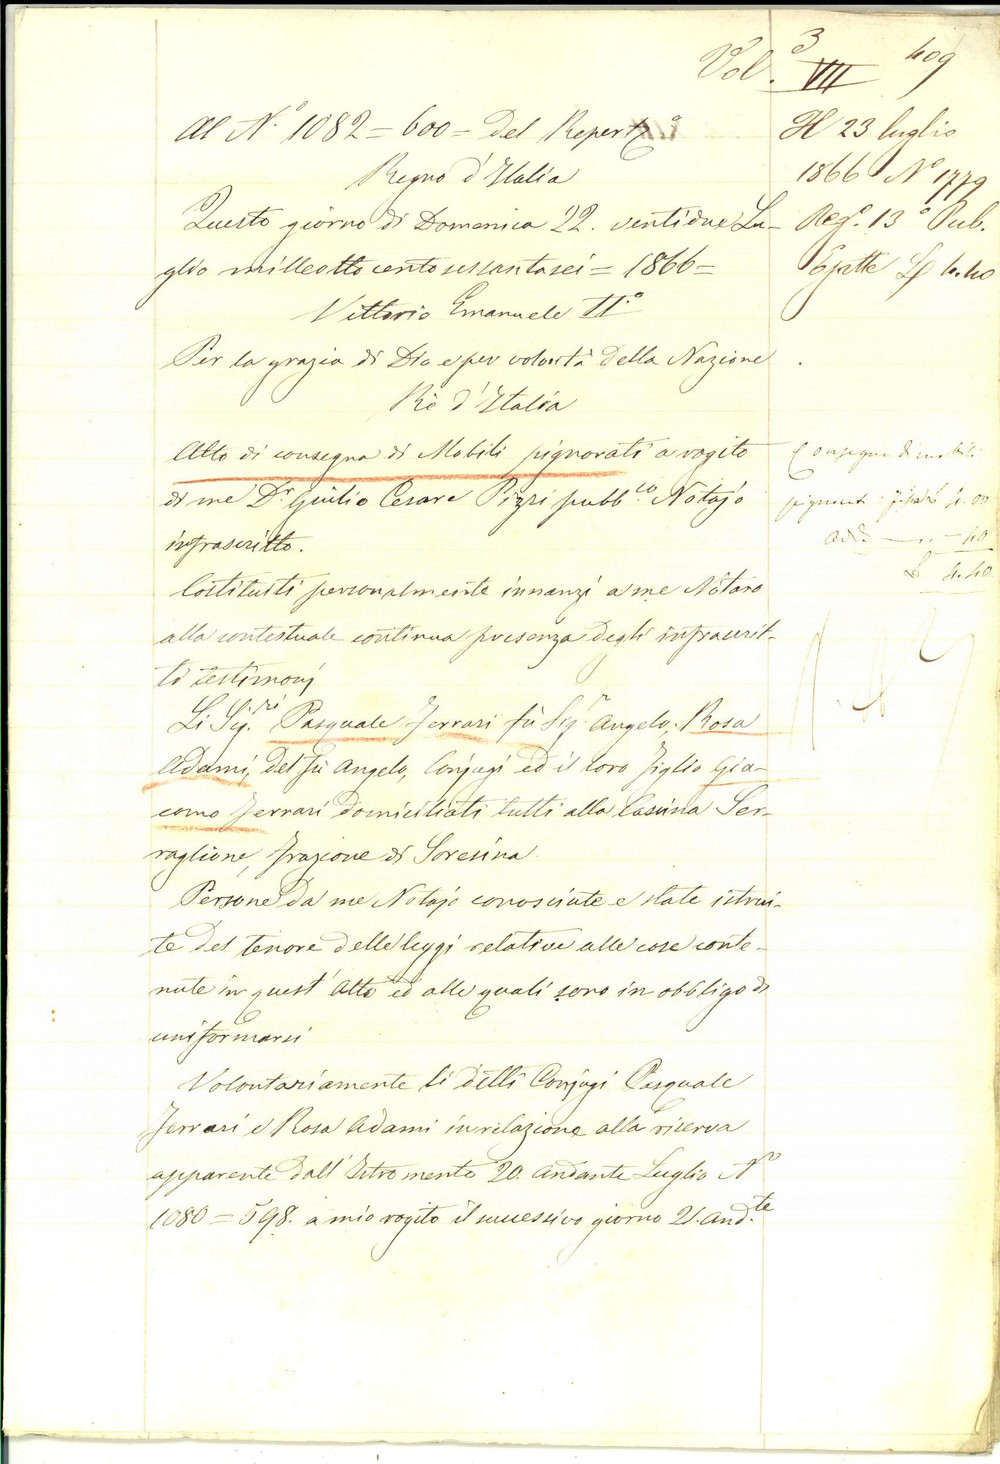 Vol. 3° VII 409
Al N.° 1082 = 600 = del Repert°
Regno d'Italia
Questo giorno di Domenica 22. ventidue Lu-
glio milleottocentosessantasei = 1866 =
Vittorio Emanuele II.°
Per la grazia di Dio e per volontà della Nazione
Rè d'Italia
Atto di consegna di Mobili pignorati a rogito
di me D.r Giulio Cesare Pizzi pubb.co Notajo
infrascritto.
Costituiti personalmente innanzi a me Notaro
alla contestuale continua presenza degli infrascrit-
ti testimonj
Li Sig.ri Pasquale Ferrari fù Sig.r Angelo, Rosa
Adami, del fù Angelo, Conjugi ed il loro figlio Gia-
como Ferrari domiciliati tutti alla Cascina Ser-
raglione, frazione di Soresina.
Persone da me Notajo conosciute e state istrui-
te del tenore delle leggi relative alle cose conte-
nute in quest'Atto ed alle quali sono in obbligo di
uniformarsi
Volontariamente li detti Conjugi Pasquale
Ferrari e Rosa Adami in relazione alla riserva
apparente dall'Istromento 20. andante Luglio N.°
1080 = 598. a mio rogito il successivo giorno 21. And.te
Il 23 luglio
1866 N° 1779
Reg.° 13° Pub.
Esatte L 4.40
Consegna di mobili
4.00
40
L 4.40